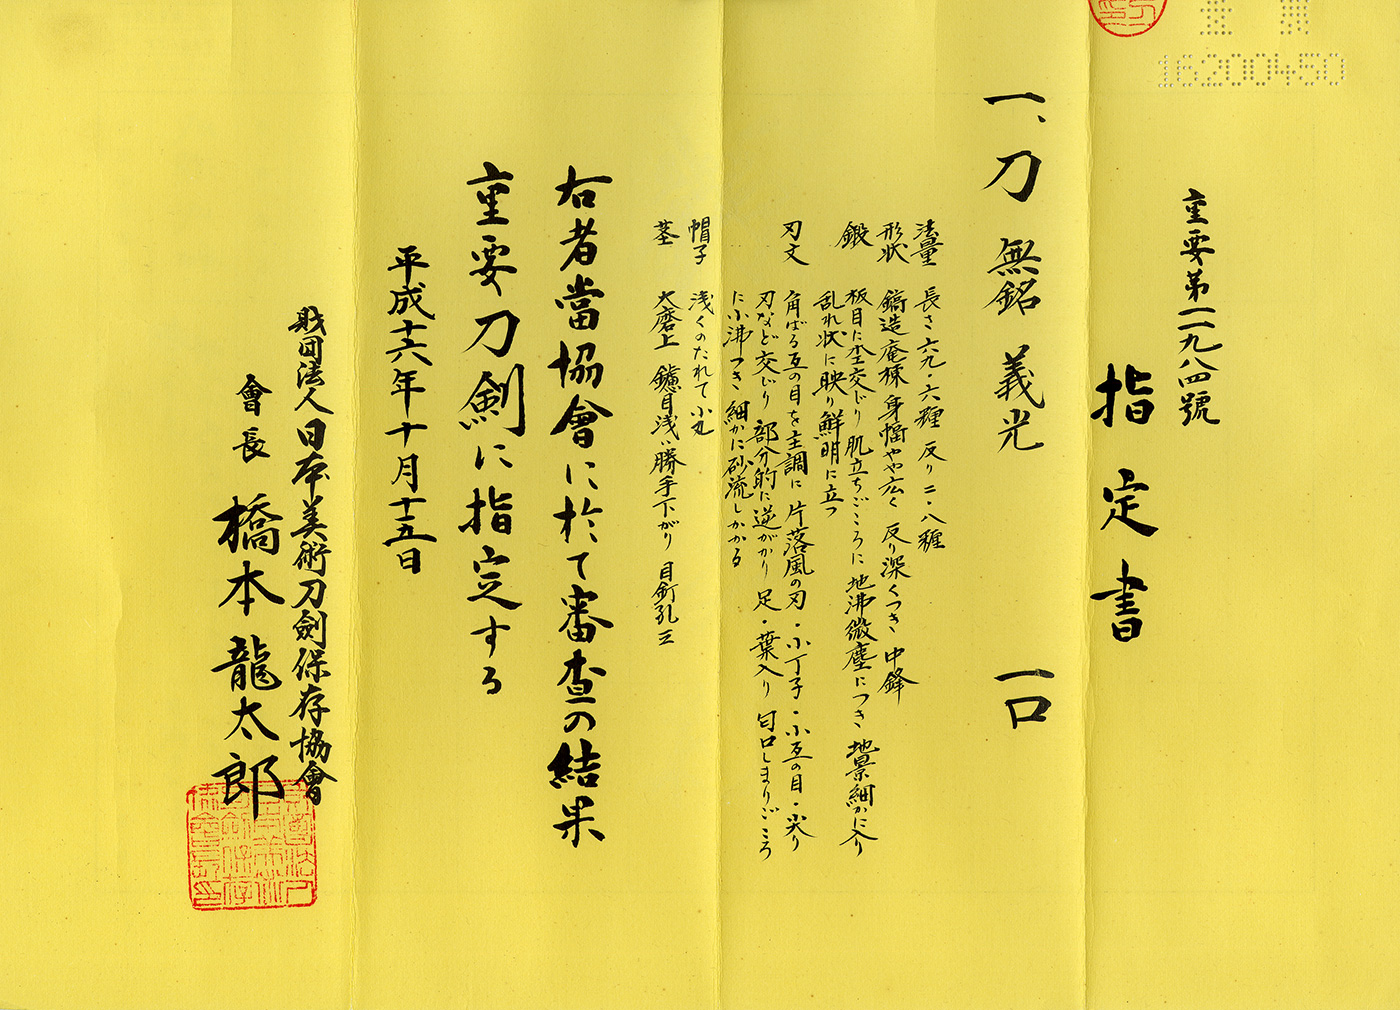 16200450
重要第一一九八四號
指定書
一、刀 無銘 義光 一口
法量 長さ六九・六糎 反り二・八糎
形状 鎬造庵棟 身幅やや広く 反り深くつき 中鋒
鍛 板目に杢交じり 肌立ちごころに 地沸微塵につき 地景細かに入り
乱れ状に映り鮮明に立つ
刃文 角ばる互の目を主調に 片落風の刃・小丁子・小互の目・尖り
刃など交じり 部分的に逆がかり 足・葉入り 匂口しまりごころ
に小沸つき 細かに砂流しかかる
帽子 浅くのたれて小丸
茎 大磨上 鑢目浅い勝手下がり 目釘孔三
右者當協會に於て審査の結果
重要刀剣に指定する
平成十六年十月十五日
財団法人日本美術刀劍保存協會
會長 橋本龍太郎